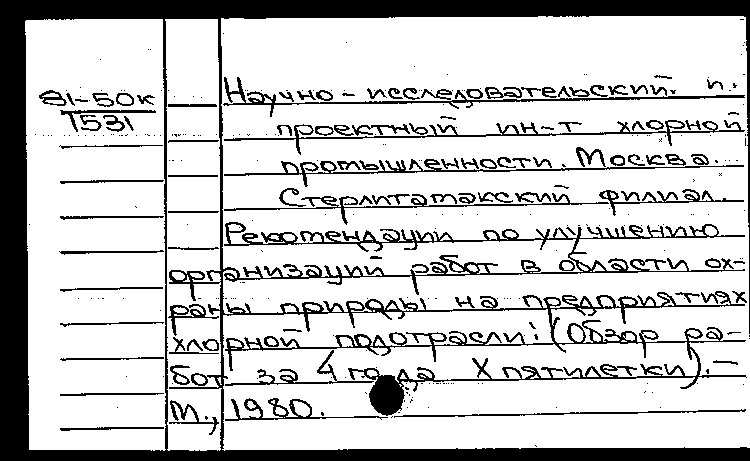 81-50к
Т531
Научно-исследовательский. и.
проектный ин-т хлорной
промышленности. Москва.
Стерлитамакский филиал.
Рекомендации по улучшению
организаций работ в области ох-
раны природы на предприятиях
хлорной подотрасли: (Обзор ра-
бот за 4 года X пятилетки).-
М., 1980.